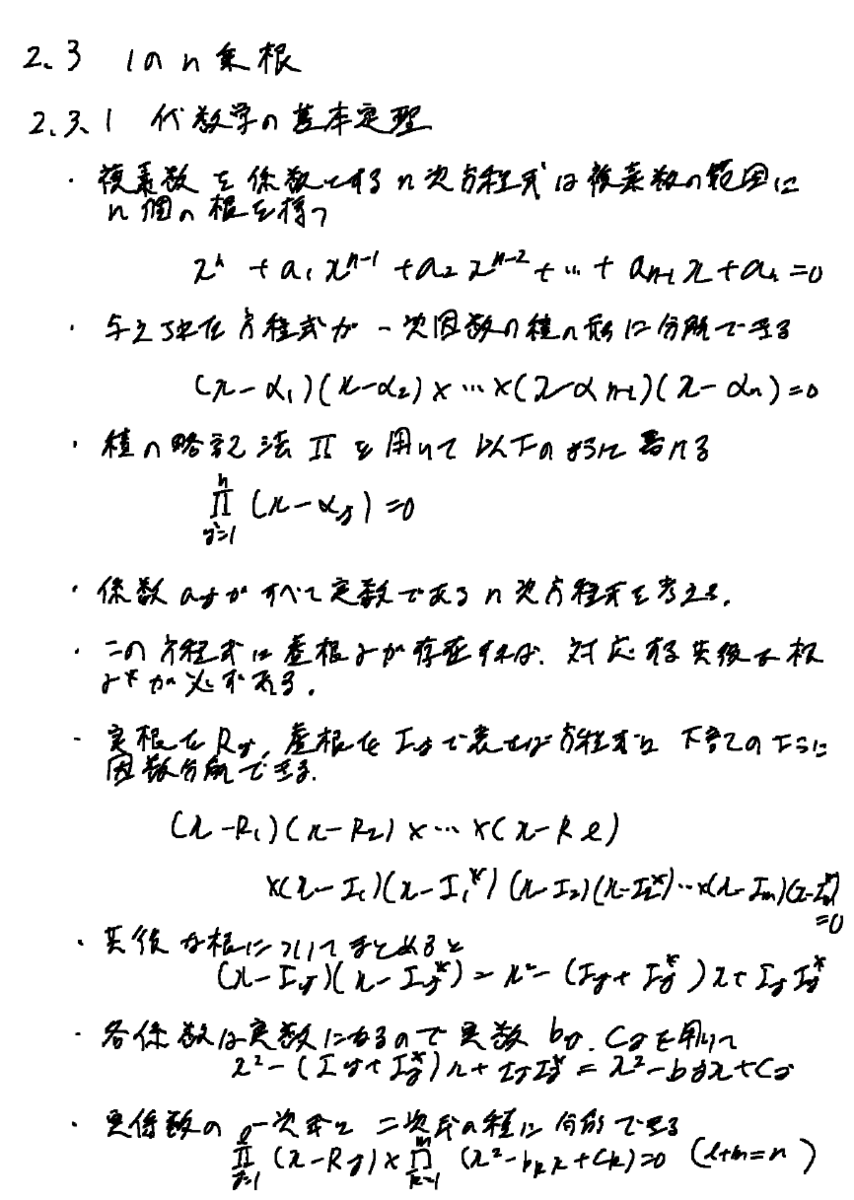 2.3 1のn乗根
2.3.1 代数学の基本定理
・複素数を係数とするn次方程式は複素数の範囲に
n個の根を持つ
x^n + a_1 x^{n-1} + a_2 x^{n-2} + … + a_{n-1} x + a_n = 0
・与えられた方程式が一次因数の積の形に分解できる
(x-α_1)(x-α_2)×…×(x-α_{n-1})(x-α_n)=0
・積の略記法Πを用いて以下のように書ける
∏_{j=1}^{n} (x-α_j)=0
・係数a_jがすべて定数であるn次方程式を考える.
・この方程式に虚根γが存在すれば.対応する共役な根
γ*が必ずある.
・実根をR_j,虚根をI_jで表せば方程式は下記のように
因数分解できる.
(x-R_1)(x-R_2)×…×(x-R_l)
×(x-I_1)(x-I_1^*)(x-I_2)(x-I_2^*)…×(x-I_m)(x-I_m^*)
=0
・共役な根についてまとめると
(x-I_j)(x-I_j^*)=x^2-(I_j+I_j^*)x+I_j I_j^*
・各係数は実数になるので実数b_j.c_jを用いて
x^2-(I_j+I_j^*)x+I_j I_j^*=x^2-b_j x+c_j
・実係数の一次式と二次式の積に分解できる
∏_{j=1}^{l} (x-R_j)×∏_{k=1}^{m} (x^2-b_k x+c_k)=0 (l+m=n)